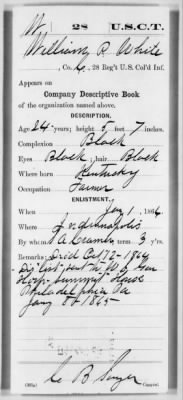 W. 28 U.S.C.T.
William R. White
, Co. C, 28 Reg't U.S. Col'd Inf.
Appears on
Company Descriptive Book
of the organization named above.
DESCRIPTION.
Age 24 years; height 5 feet 7 inches.
Complexion Black
Eyes Black; hair Black
Where born Kentucky
Occupation Farmer
ENLISTMENT.
When Jany 1, 1864.
Where Indianapolis
By whom A Cramer; term 3 y'rs.
Remarks: Died Oct 12 - 1864
"List" sent the
Hosp. Summit House
Philadelphia Pa
Jany 8" 1865
C B
Copyist.